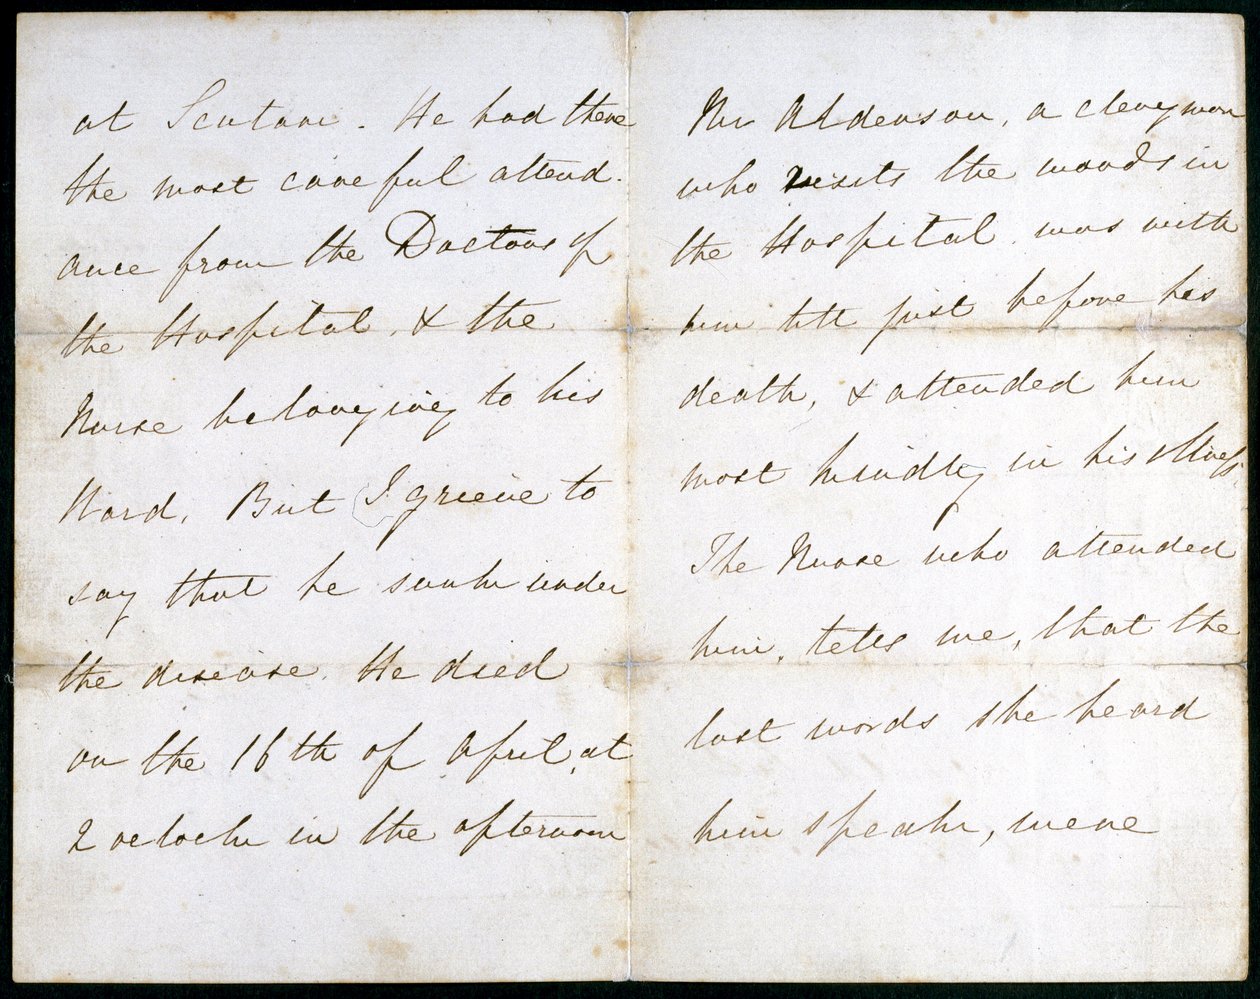 at Scutari. He had there
the most careful attend-
ance from the Doctors of
the Hospital, & the
Nurse belonging to his
Ward. But I grieve to
say that he sunk under
the disease. He died
on the 16th of April, at
2 o'clock in the afternoon
Mr Alderson, a clergyman
who visits the wards in
the Hospital, was with
him till just before his
death, & attended him
most kindly in his illness.
The Nurse who attended
him, tells me, that the
last words she heard
him speak, were